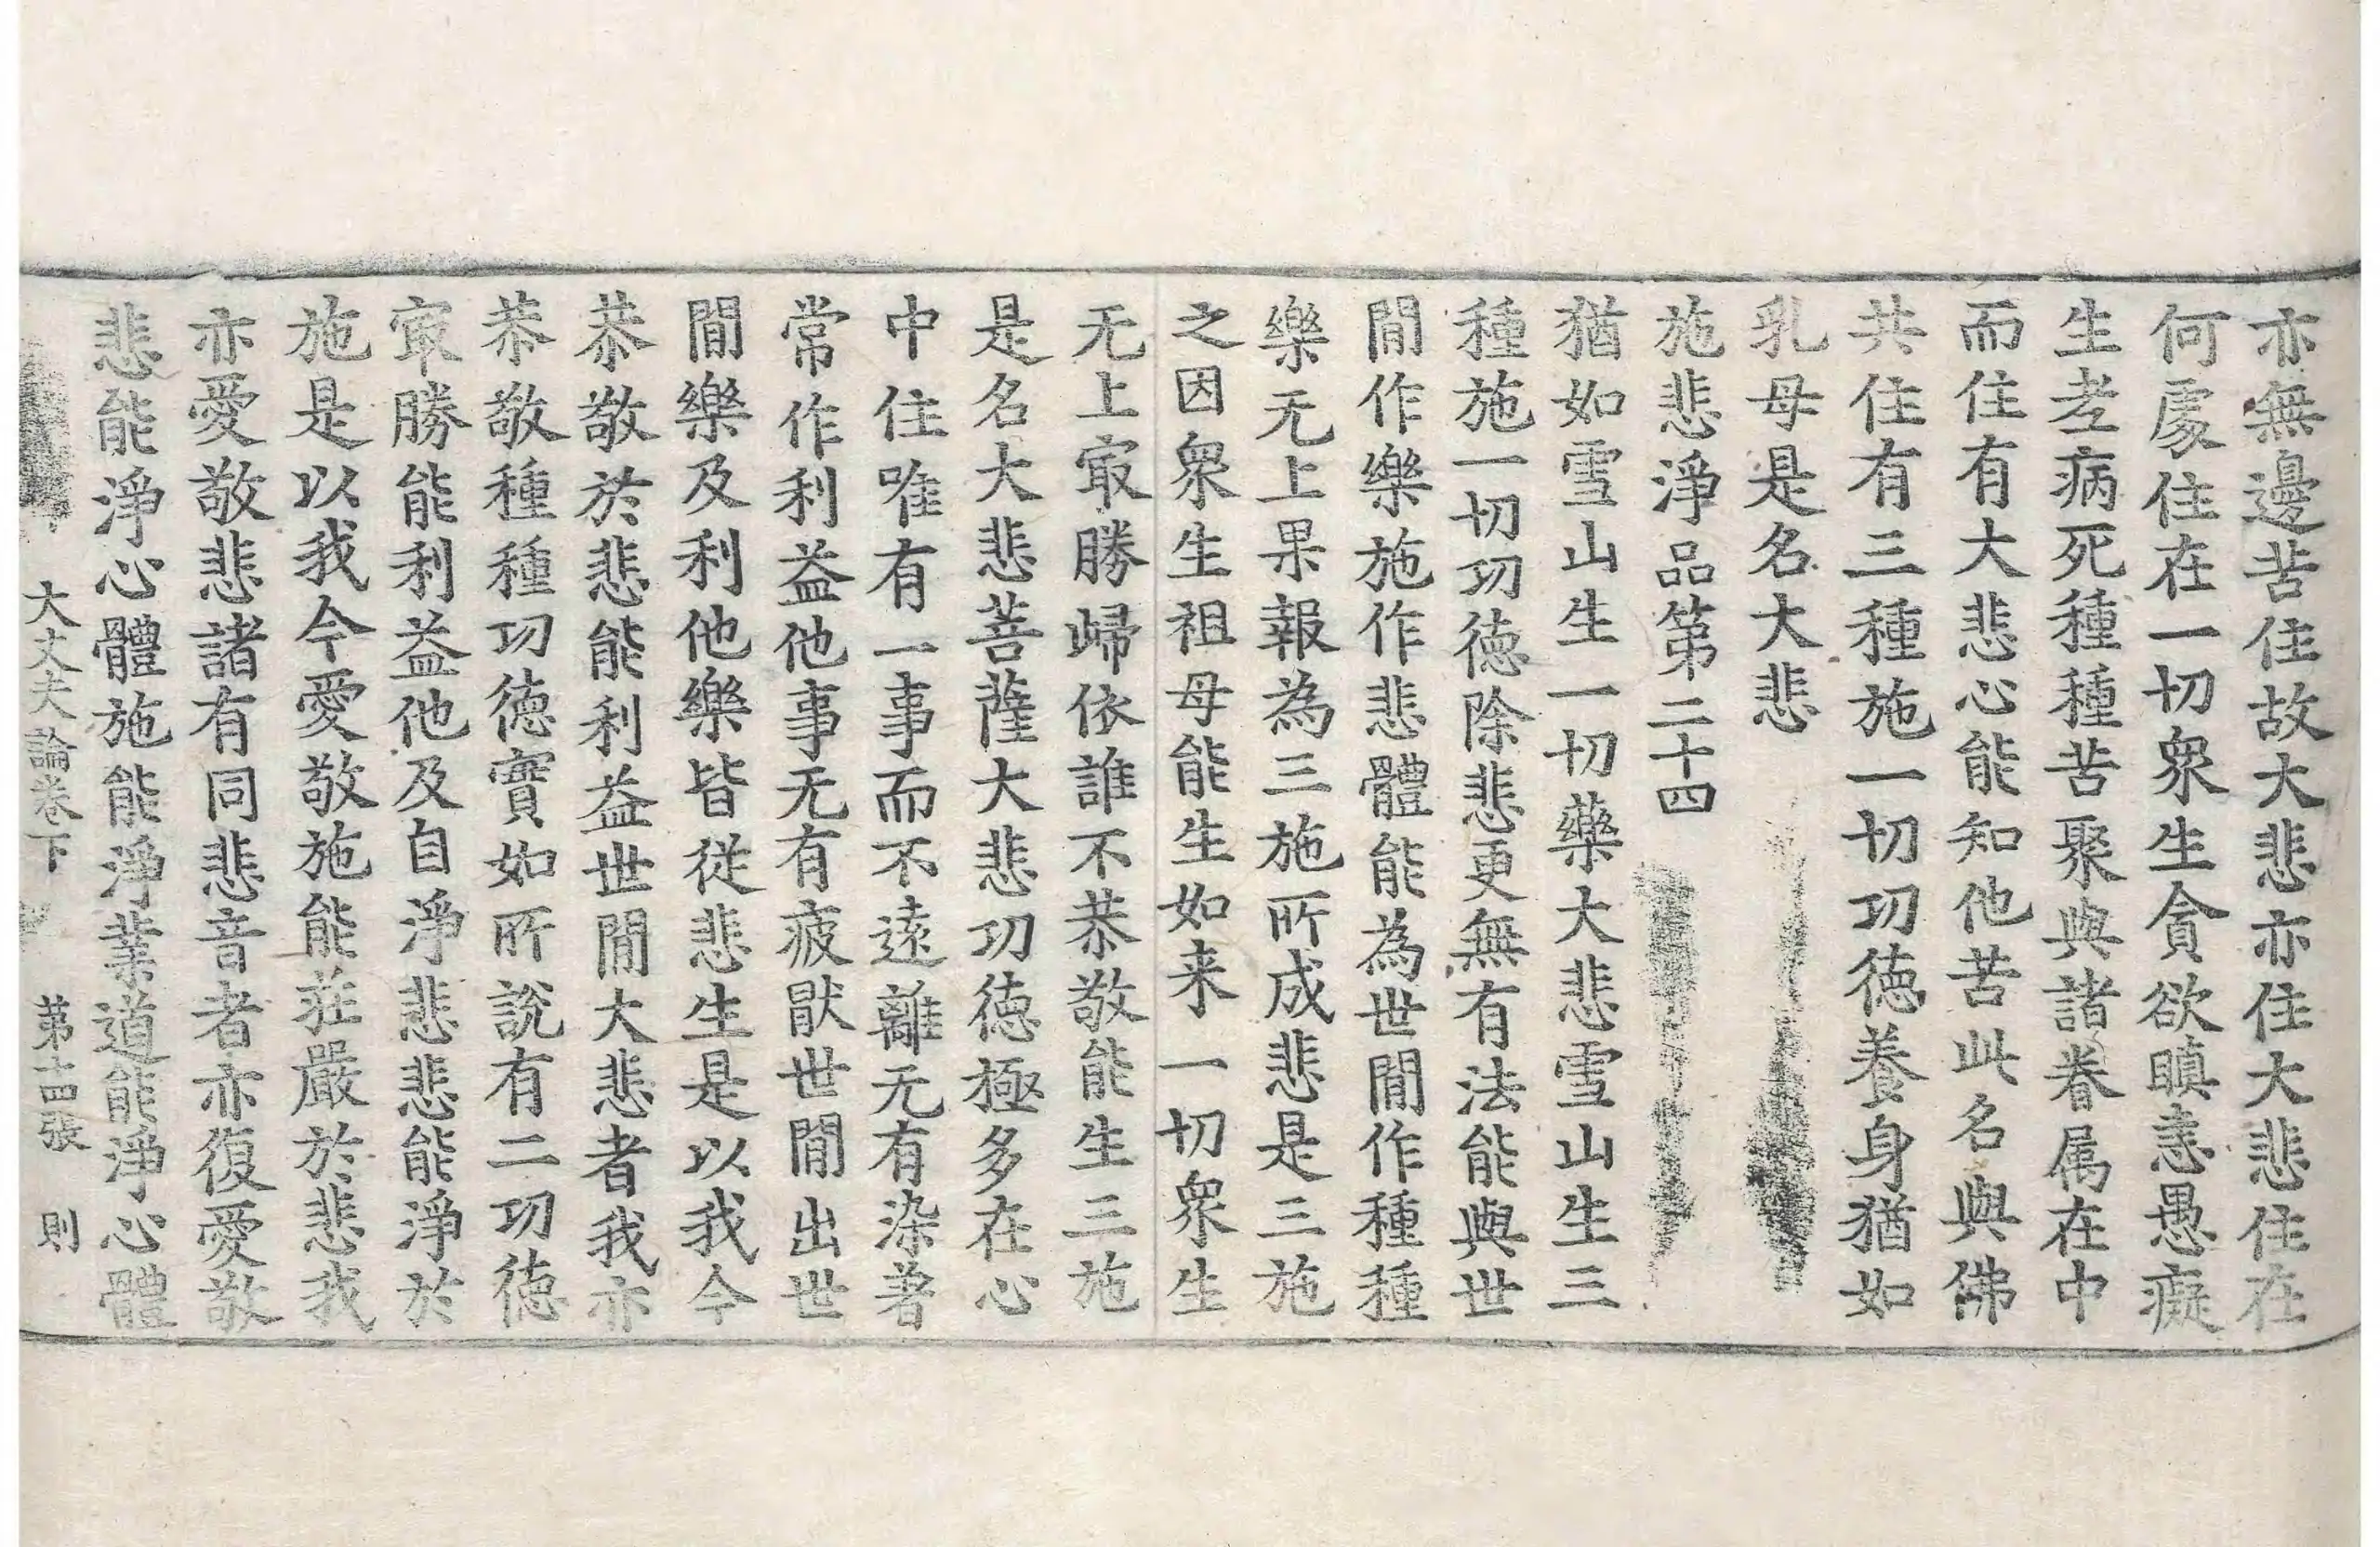 亦無邊苦住故大悲亦住大悲住在
何處住在一切衆生貪欲瞋恚愚癡
生老病死種種苦聚與諸眷属在中
而住有大悲心能知他苦此名與佛
共住有三種施一切功德養身猶如
乳母是名大悲
施悲淨品第二十四
猶如雪山生一切藥大悲雪山生三
種施一切功德除悲更無有法能與世
間作樂施作悲體能為世間作種種
樂无上果報為三施所成悲是三施
之因衆生祖母能生如来一切衆生
无上㝡勝歸依誰不恭敬能生三施
是名大悲菩薩大悲功德極多在心
中住唯有一事而不遠離无有染著
常作利益他事无有疲猒世間出世
間樂及利他樂皆從悲生是以我今
恭敬於悲能利益世間大悲者我亦
恭敬種種功德寶如所說有二功德
㝡勝能利益他及自淨悲悲能淨於
施是以我今愛敬施能莊嚴於悲我
亦愛敬悲諸有同悲音者亦復愛敬
悲能淨心體施能淨業道能淨心體
大丈夫論卷下 第十四張 則